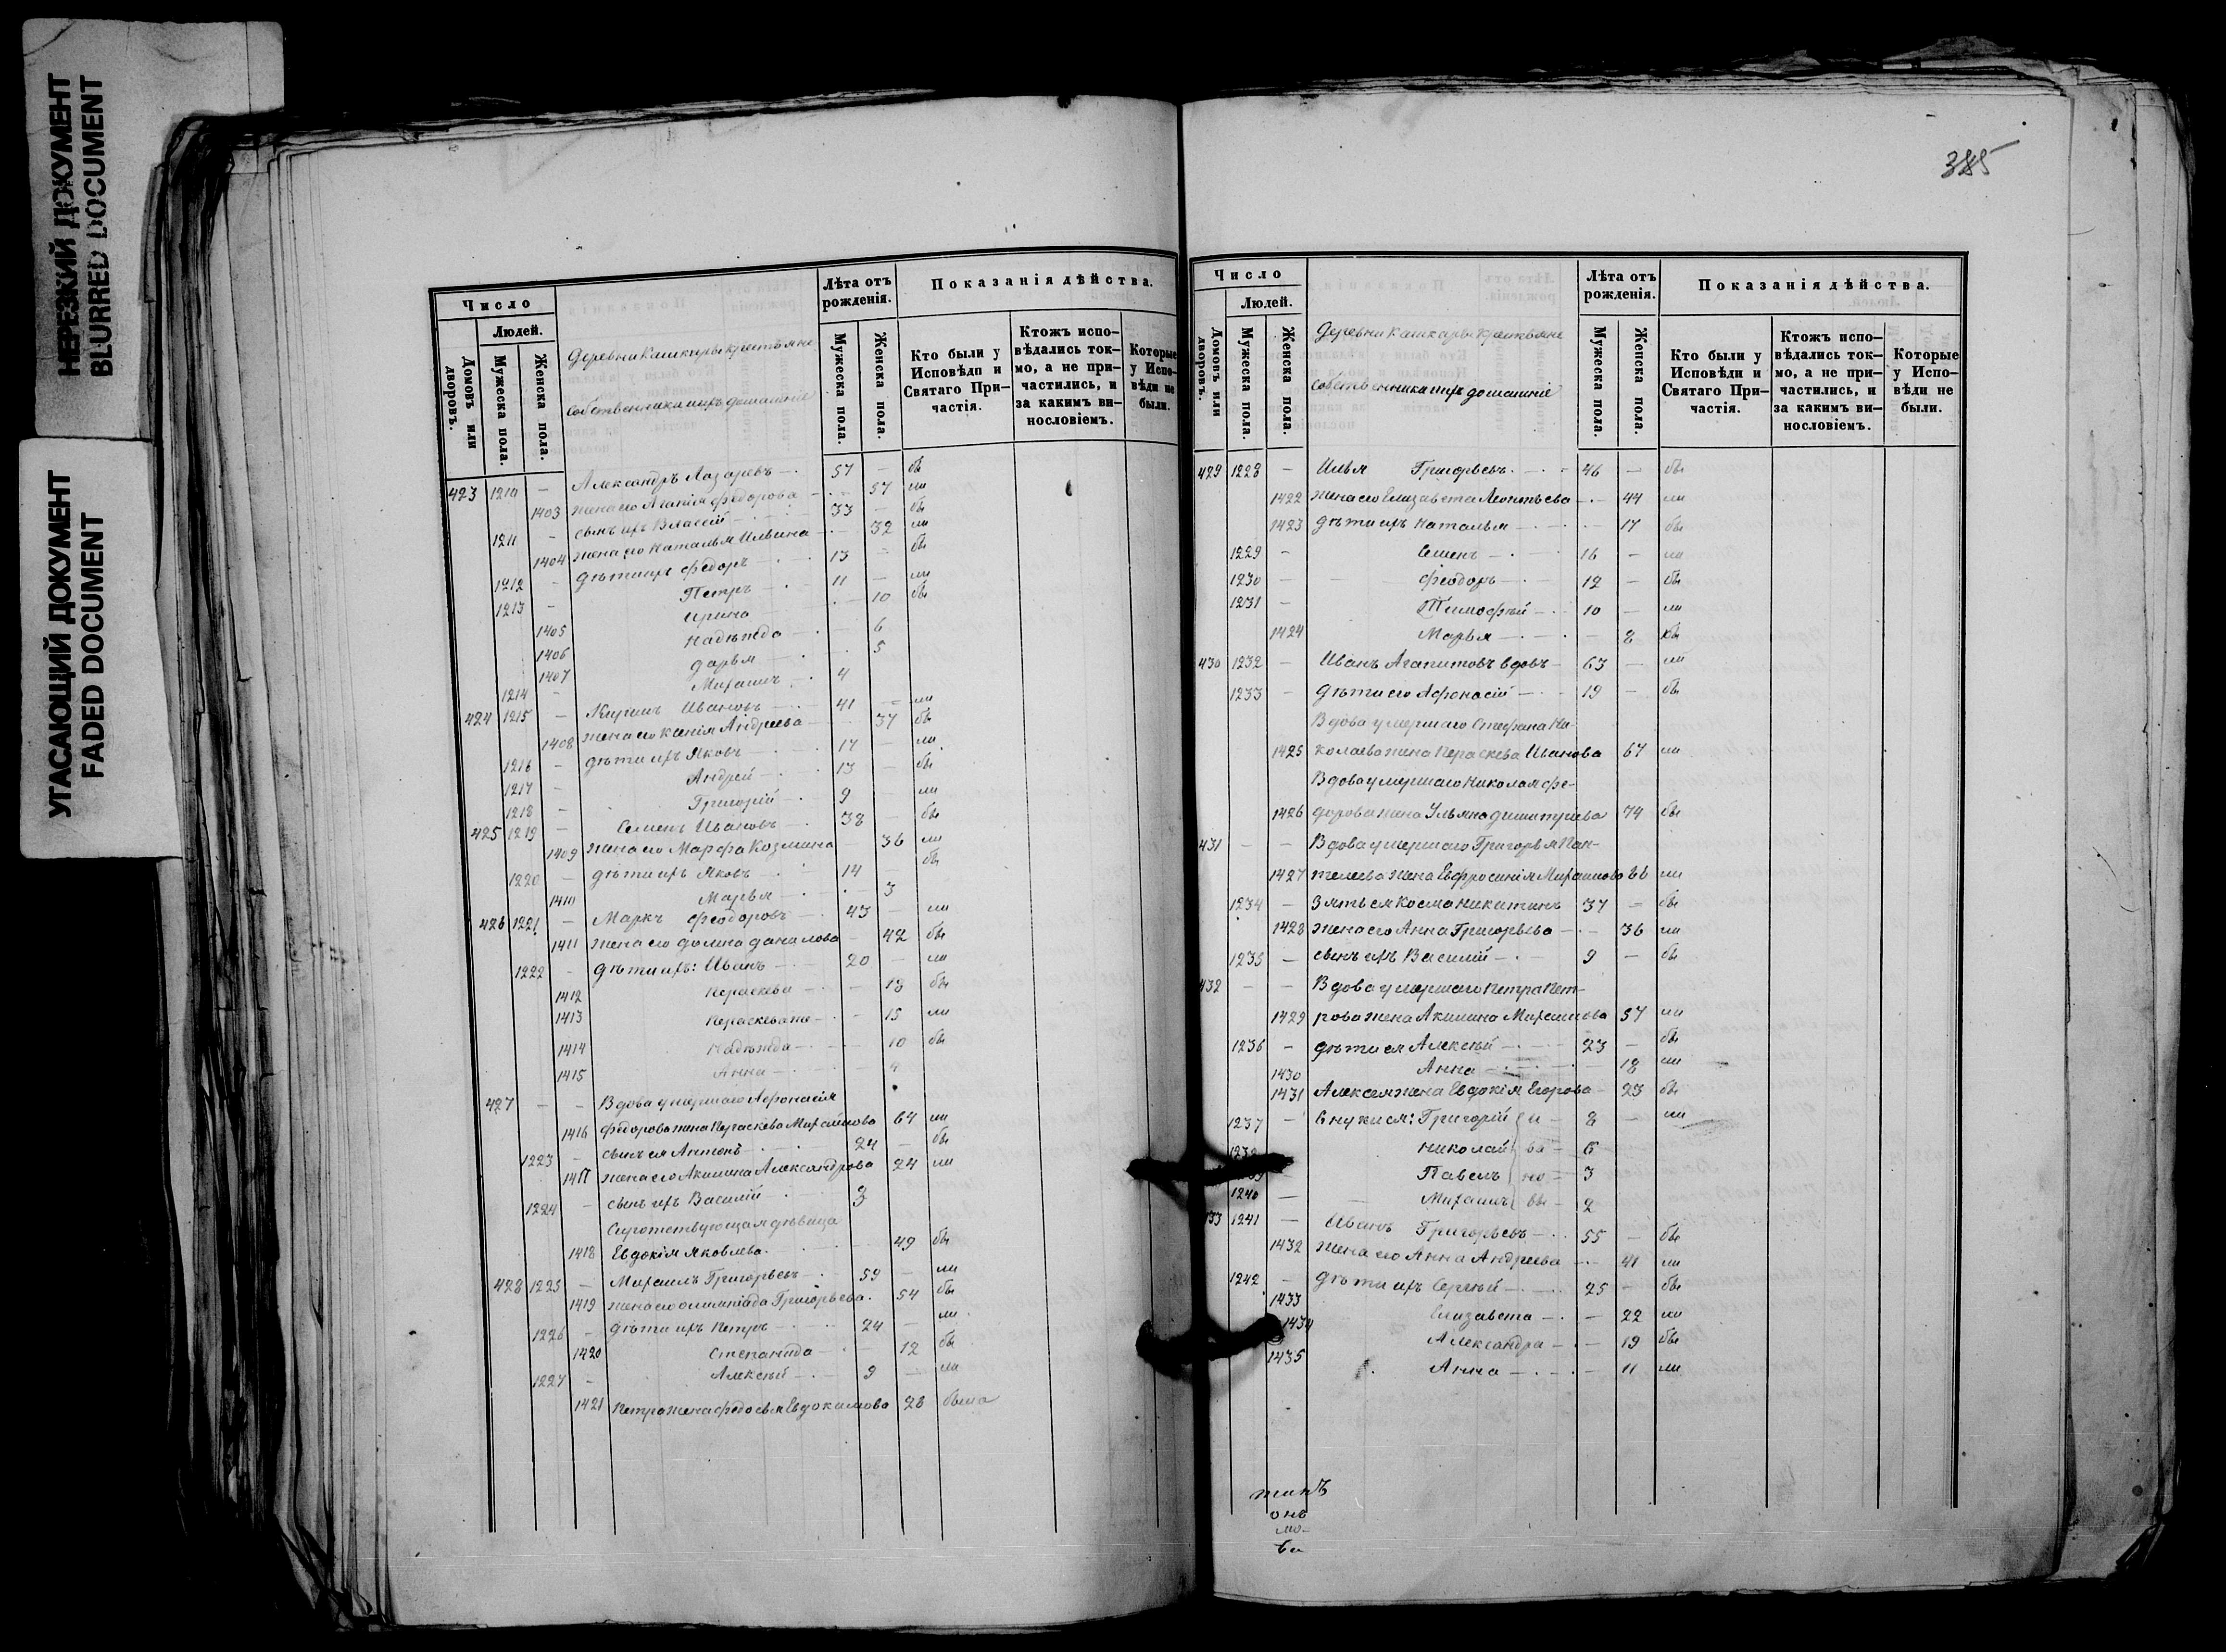 НЕРЕЗКИЙ ДОКУМЕНТ
BLURRED DOCUMENT
УГАСАЮЩИЙ ДОКУМЕНТ
FADED DOCUMENT
385
Число
Людей.
Домовъ или дворовъ.
Мужеска пола.
Женска пола.
Деревни Кашкары крестьяне
собственники и ихъ домашніе
Лѣта отъ рожденія.
Мужеска пола.
Женска пола.
Показанія дѣйства.
Кто были у Исповѣди и Святаго Причастія.
Ктожъ исповѣдались токмо, а не причастились, и за какимъ винословіемъ.
Которые у Исповѣди не были.
423 1210 — Александръ Лазаревъ — 57 — бы
1403 жена его Агапія Федорова — 57 ли
1211 — сынъ ихъ Власій — 33 — бы
1404 жена его Наталья Ильина — 32 ли
1212 — дѣти ихъ Федоръ — 13 — бы
1213 — Петръ — 11 — ли
1405 Ирина — 10 бы
1406 Надежда — 6
1407 Дарья — 5
1214 — Михаилъ — 4
424 1215 — Ивановъ — 41 — ли
1408 жена его Ксенія Андреева — 37 бы
1216 — дѣти ихъ Яковъ — 17 — ли
1217 — Андрей — 13 — бы
1218 — Григорій — 9 — ли
425 1219 — Семенъ Ивановъ — 38 — бы
1409 жена его Марфа Козмина — 36 ли
1220 — дѣти ихъ Яковъ — 14 бы
1410 Марья — 3
426 1221 — Маркъ Феодоровъ — 43 — ли
1411 жена его Домна Данилова — 42 бы
1222 — дѣти ихъ: Иванъ — 20 — ли
1412 Параскева — 18 бы
1413 Параскева же — 15 ли
1414 Надежда — 10 бы
1415 Анна — 4
427 — — Вдова умершаго Афонасія
1416 Федорова жена Параскева Михаилова 64 ли
1223 — сынъ ея Антонъ — 24 — бы
1417 жена его Акилина Александрова 24 ли
1224 — сынъ ихъ Василій — 3
Сиротствующая дѣвица
1418 Евдокія Яковлева 49 бы
428 1225 — Михаилъ Григорьевъ — 59 — ли
1419 жена его Олимпіада Григорьева 54 бы
1226 — дѣти ихъ Петръ — 24 — ли
1420 Степанида — 12 бы
1227 — Алексѣй — 9 — ли
1421 Петра жена Федосья Евдокимова 28 была
Число
Людей.
Домовъ или дворовъ.
Мужеска пола.
Женска пола.
Деревни Кашкары крестьяне
собственники и ихъ домашніе
Лѣта отъ рожденія.
Мужеска пола.
Женска пола.
Показанія дѣйства.
Кто были у Исповѣди и Святаго Причастія.
Ктожъ исповѣдались токмо, а не причастились, и за какимъ винословіемъ.
Которые у Исповѣди не были.
429 1228 — Илья Григорьевъ — 46 — бы
1422 жена его Елизавета Леонтьева — 44 ли
1423 дѣти ихъ Наталья — 17 бы
1229 — Семенъ — 16 — ли
1230 — Феодоръ — 12 — бы
1231 — Тимофѣй — 10 — ли
1424 Марья — 8 бы
430 1232 — Иванъ Агапитовъ вдовъ — 63 — ли
1233 — дѣти его Афонасій — 19 — бы
Вдова умершаго Стефана Ни-
1425 колаева жена Параскева Иванова 67 ли
Вдова умершаго Николая Фе-
1426 дорова жена Ульяна Димитріева 74 бы
431 — — Вдова умершаго Григорья Пан-
1427 телеева жена Евфросинія Михаилова 66 ли
1234 — Зять ея Косма Никитинъ 37 — бы
1428 жена его Анна Григорьева — 36 ли
1235 — сынъ ихъ Василій — 9 — бы
432 — — Вдова умершаго Петра Пет-
1429 рова жена Акилина Михаилова 57 ли
1236 — дѣти ея Алексѣй — 23 — бы
1430 Анна — 18 ли
1431 Алексѣя жена Евдокія Егорова — 23 бы
1237 — внуки ея: Григорій и — 8 — ли
Николай ва — 6
Павелъ но — 3
1240 — Михаилъ вы — 2
433 1241 — Иванъ Григорьевъ — 55 — бы
1432 жена его Анна Андреева — 41 ли
1242 — дѣти ихъ Сергѣй — 25 — бы
1433 Елизавета — 22 ли
1434 Александра — 19 бы
1435 Анна — 11 ли
онъ